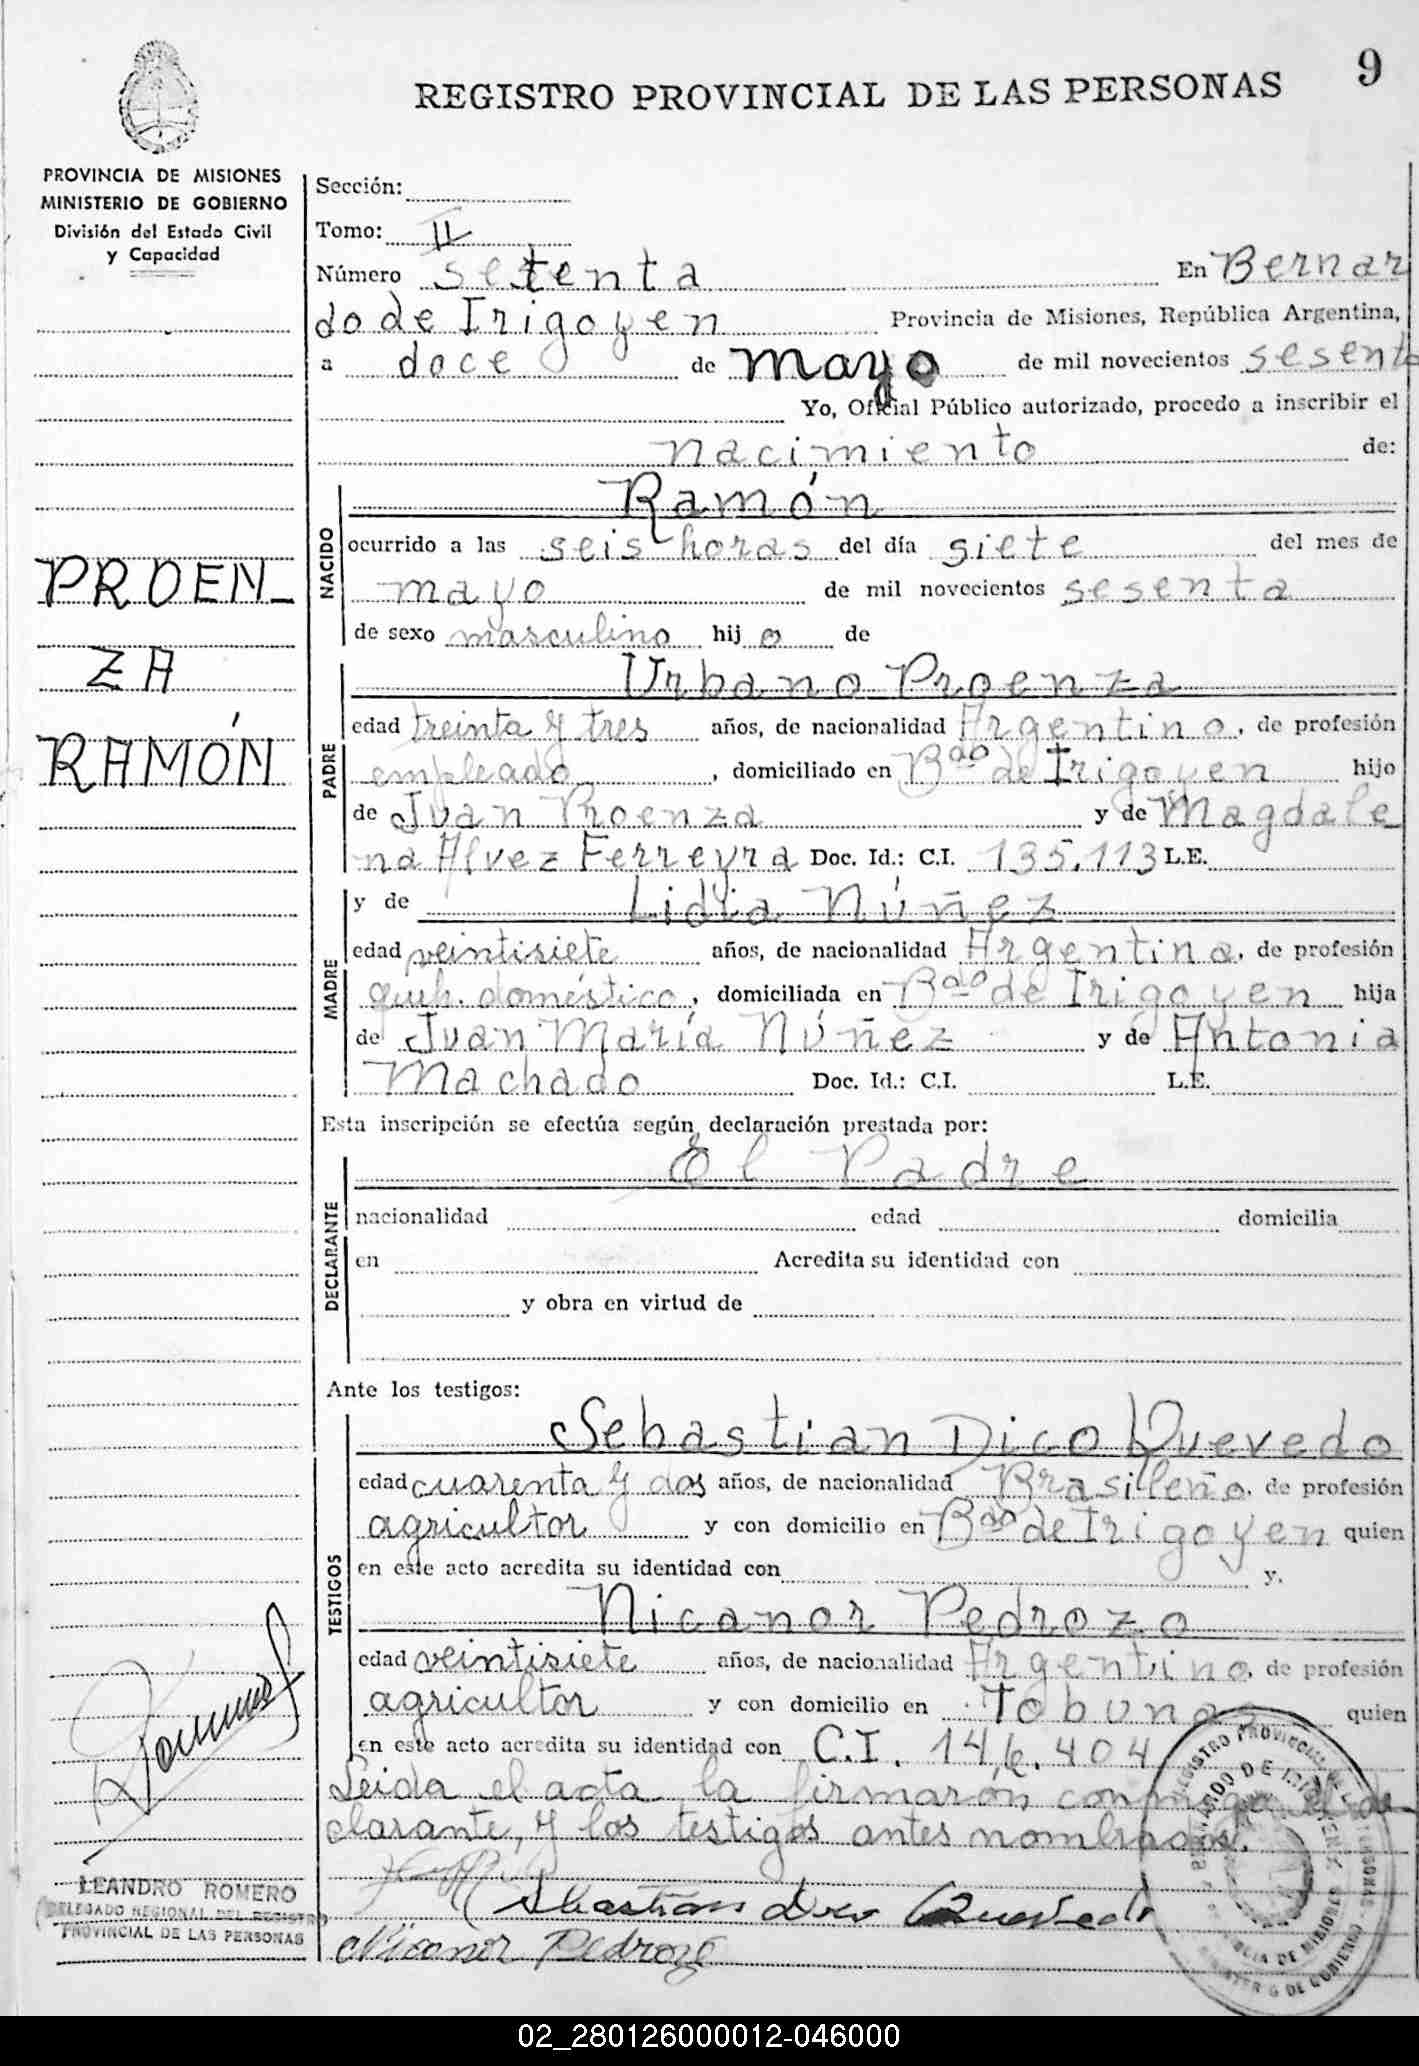 9
REGISTRO PROVINCIAL DE LAS PERSONAS
PROVINCIA DE MISIONES
MINISTERIO DE GOBIERNO
División del Estado Civil
y Capacidad
PROEN-
ZA
RAMÓN
Sección:
Tomo: II
Número setenta En Bernar
do de Irigoyen Provincia de Misiones, República Argentina,
a doce de mayo de mil novecientos sesenta
Yo, Oficial Público autorizado, procedo a inscribir el
nacimiento de:
NACIDO
Ramón
ocurrido a las seis horas del día siete del mes de
mayo de mil novecientos sesenta
de sexo masculino hijo de
PADRE
Urbano Proenza
edad treinta y tres años, de nacionalidad Argentino, de profesión
empleado, domiciliado en Bdo de Irigoyen hijo
de Juan Proenza y de Magdale
na Alvez Ferreyra Doc. Id.: C.I. 135.113 L.E.
MADRE
y de Lidia Núñez
edad veintisiete años, de nacionalidad Argentina, de profesión
queh. doméstico, domiciliada en Bdo de Irigoyen hija
de Juan María Núñez y de Antonia
Machado Doc. Id.: C.I. L.E.
Esta inscripción se efectúa según declaración prestada por:
DECLARANTE
El Padre
nacionalidad edad domicilia
en Acredita su identidad con
y obra en virtud de
Ante los testigos:
TESTIGOS
Sebastian Dico Quevedo
edad cuarenta y dos años, de nacionalidad Brasileño, de profesión
agricultor y con domicilio en Bdo de Irigoyen quien
en este acto acredita su identidad con y.
Nicanor Pedrozo
edad veintisiete años, de nacionalidad Argentino, de profesión
agricultor y con domicilio en Tobunas quien
en este acto acredita su identidad con C.I. 146.404
Leida el acta, la firmarón conmigo el de
clarante, y los testigos antes nombrados.
Sebastian Dico Quevedo
Nicanor Pedrozo
LEANDRO ROMERO
DELEGADO REGIONAL DEL REGISTRO
PROVINCIAL DE LAS PERSONAS
02_280126000012-046000